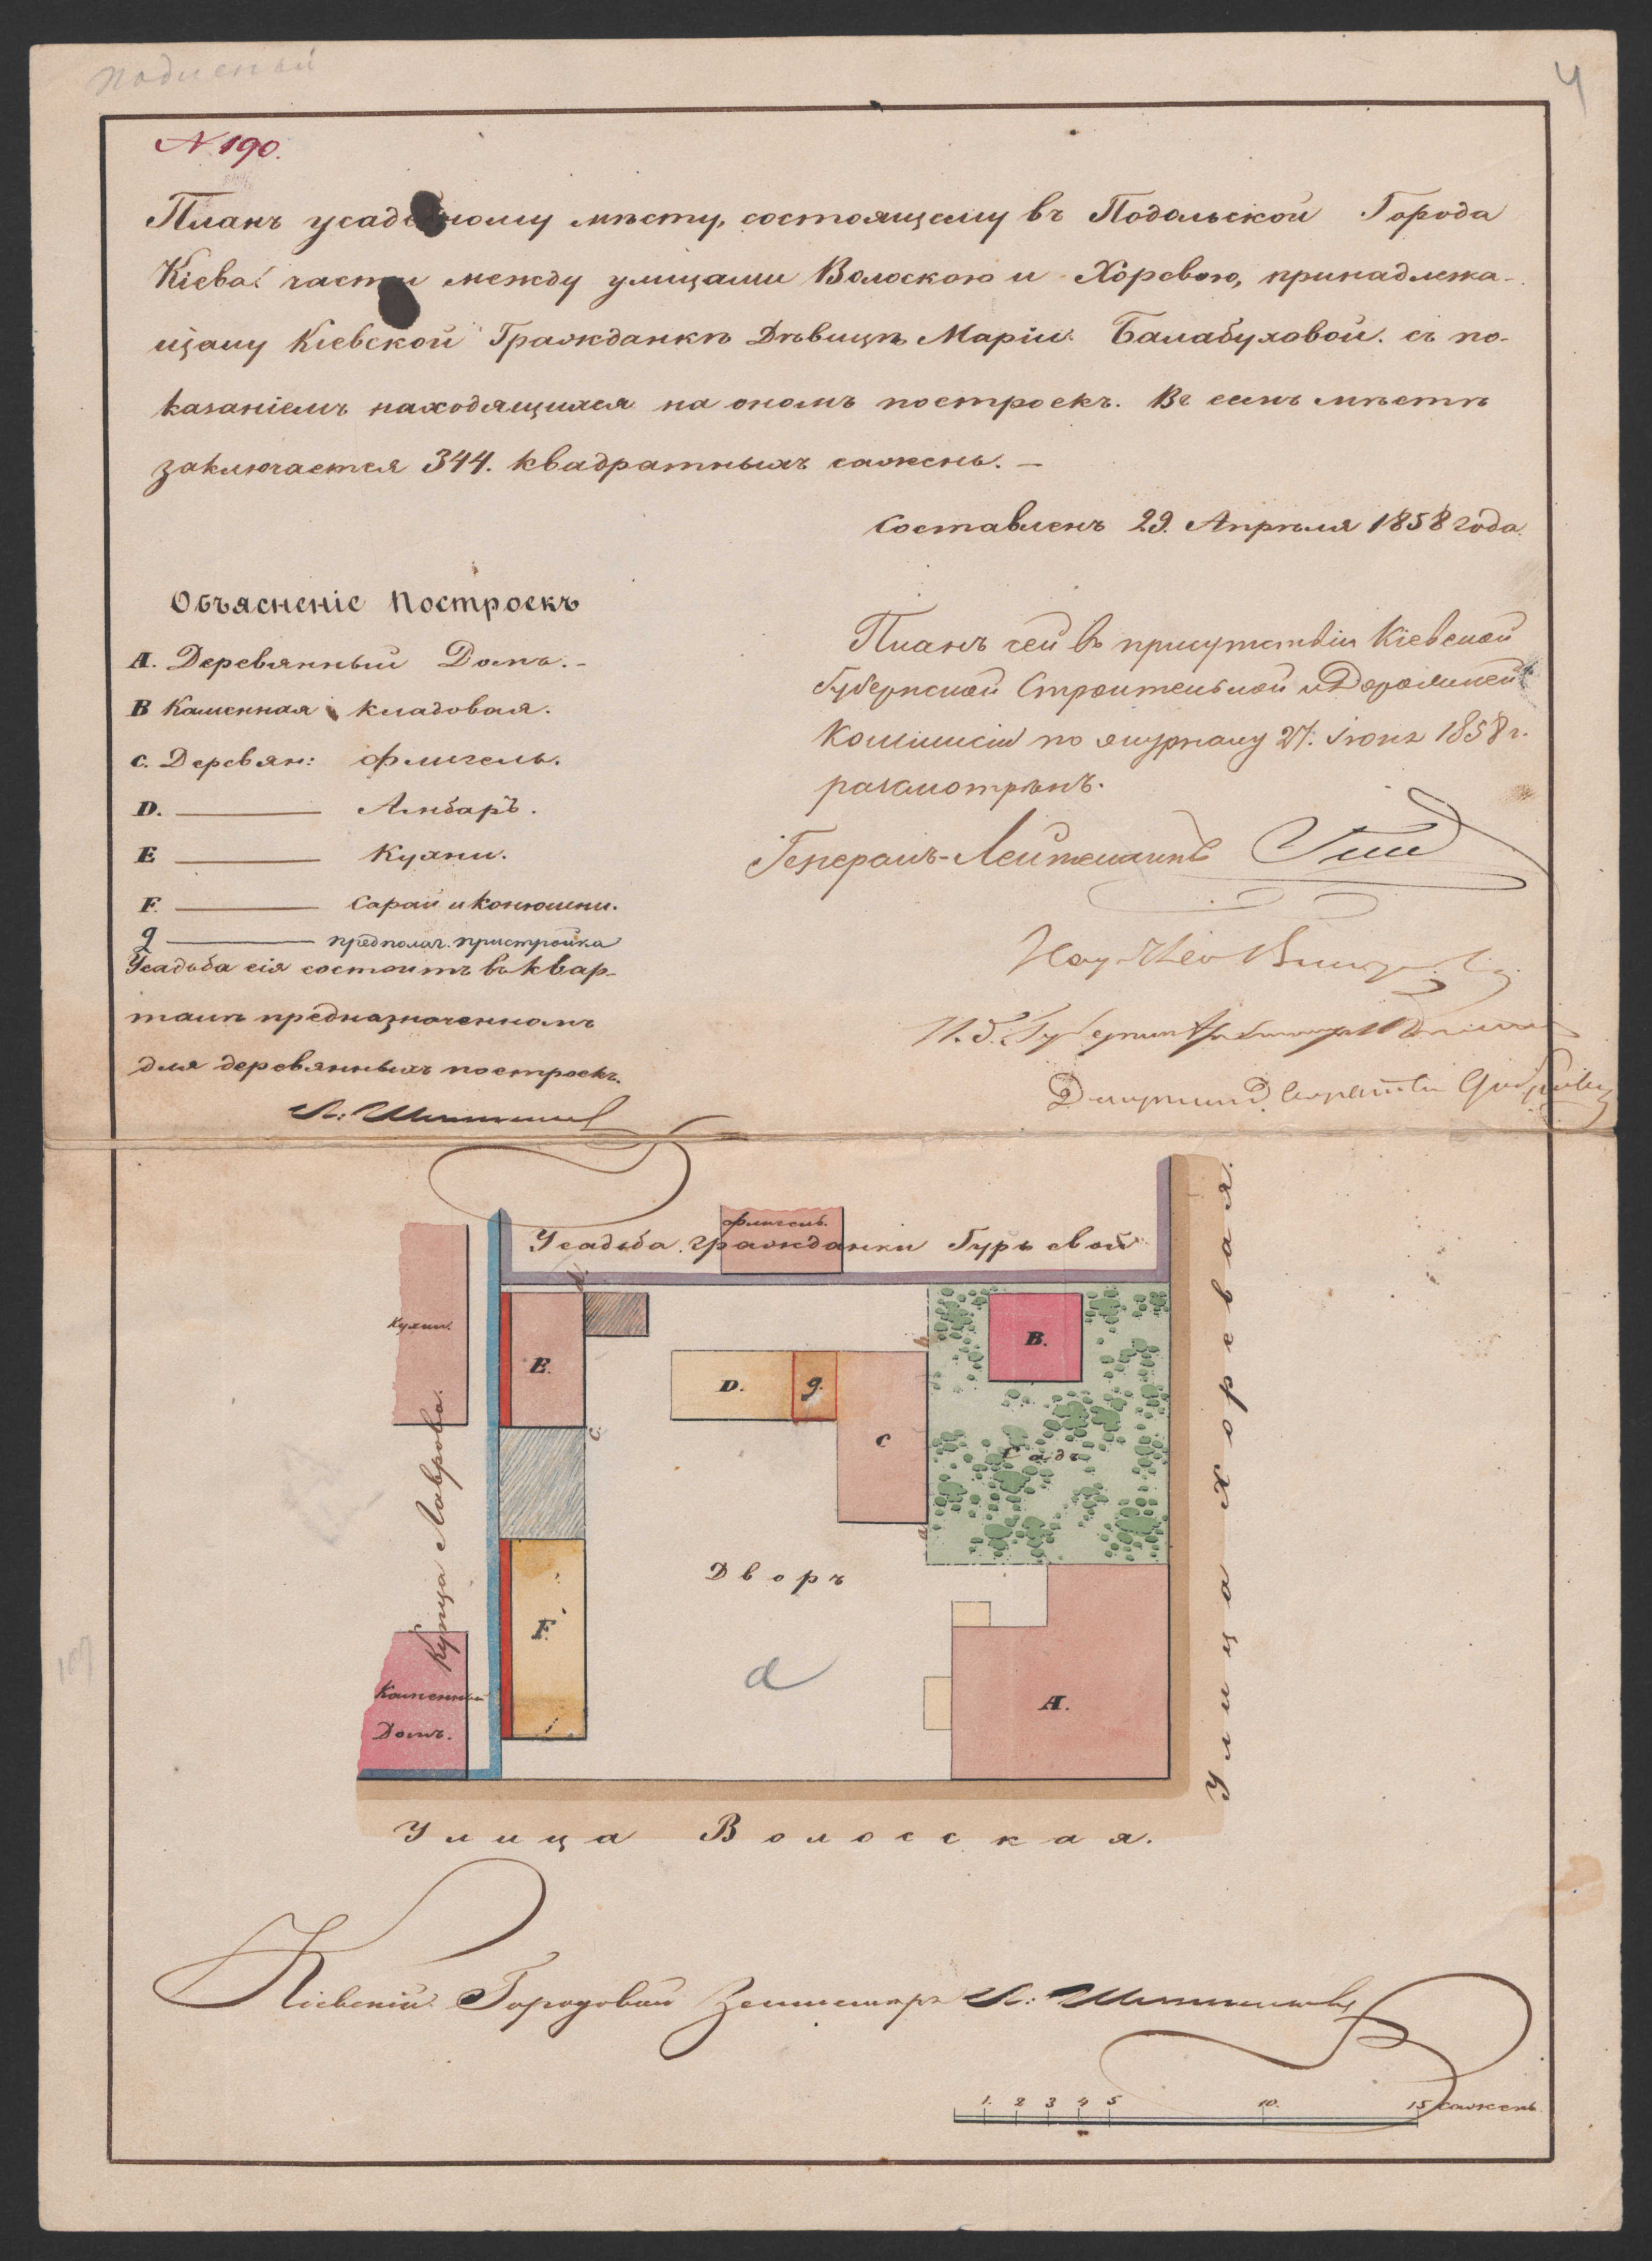 Подлсный
4
N 190.
Планъ усадебному мѣсту, состоящему въ Подольской Города
Кіева части между улицами Волоскою и Хоревою, принадлежа-
щему Кіевской Гражданкѣ Дѣвицѣ Маріи Балабуховой. съ по-
казаніемъ находящихся на ономъ построекъ. Въ семъ мѣстѣ
заключается 344. квадратныхъ сажень. —
Составленъ 29. Апрѣля 1858 года.
Объясненіе Построекъ
A. Деревянный Домъ. -
B Каменная кладовая.
C. Деревян: флигель.
D. —— Амбаръ.
E —— Кухни.
F. —— Сараи и конюшни.
g —— предполаг. пристройка
Усадьба сія состоитъ въ квар-
талѣ предназначенномъ
для деревянныхъ построекъ.
Планъ сей въ присутствіи Кіевской
Губернской Строительной и Дорожной
Коммисіи по журналу 27. Іюня 1858 г.
разсмотрѣнъ.
Генералъ-Лейтенантъ
флигель.
Усадьба гражданки Гурьевой
Кухни.
Купца Лаврова.
Каменный
Домъ.
E.
d.
c.
F.
D.
g.
C
b
a
B.
Садъ
Дворъ
a
A.
Улица Хоревая.
Улица Волосская.
Кіевскій Городовой Землемѣръ
1. 2 3 4 5 10. 15 сажень